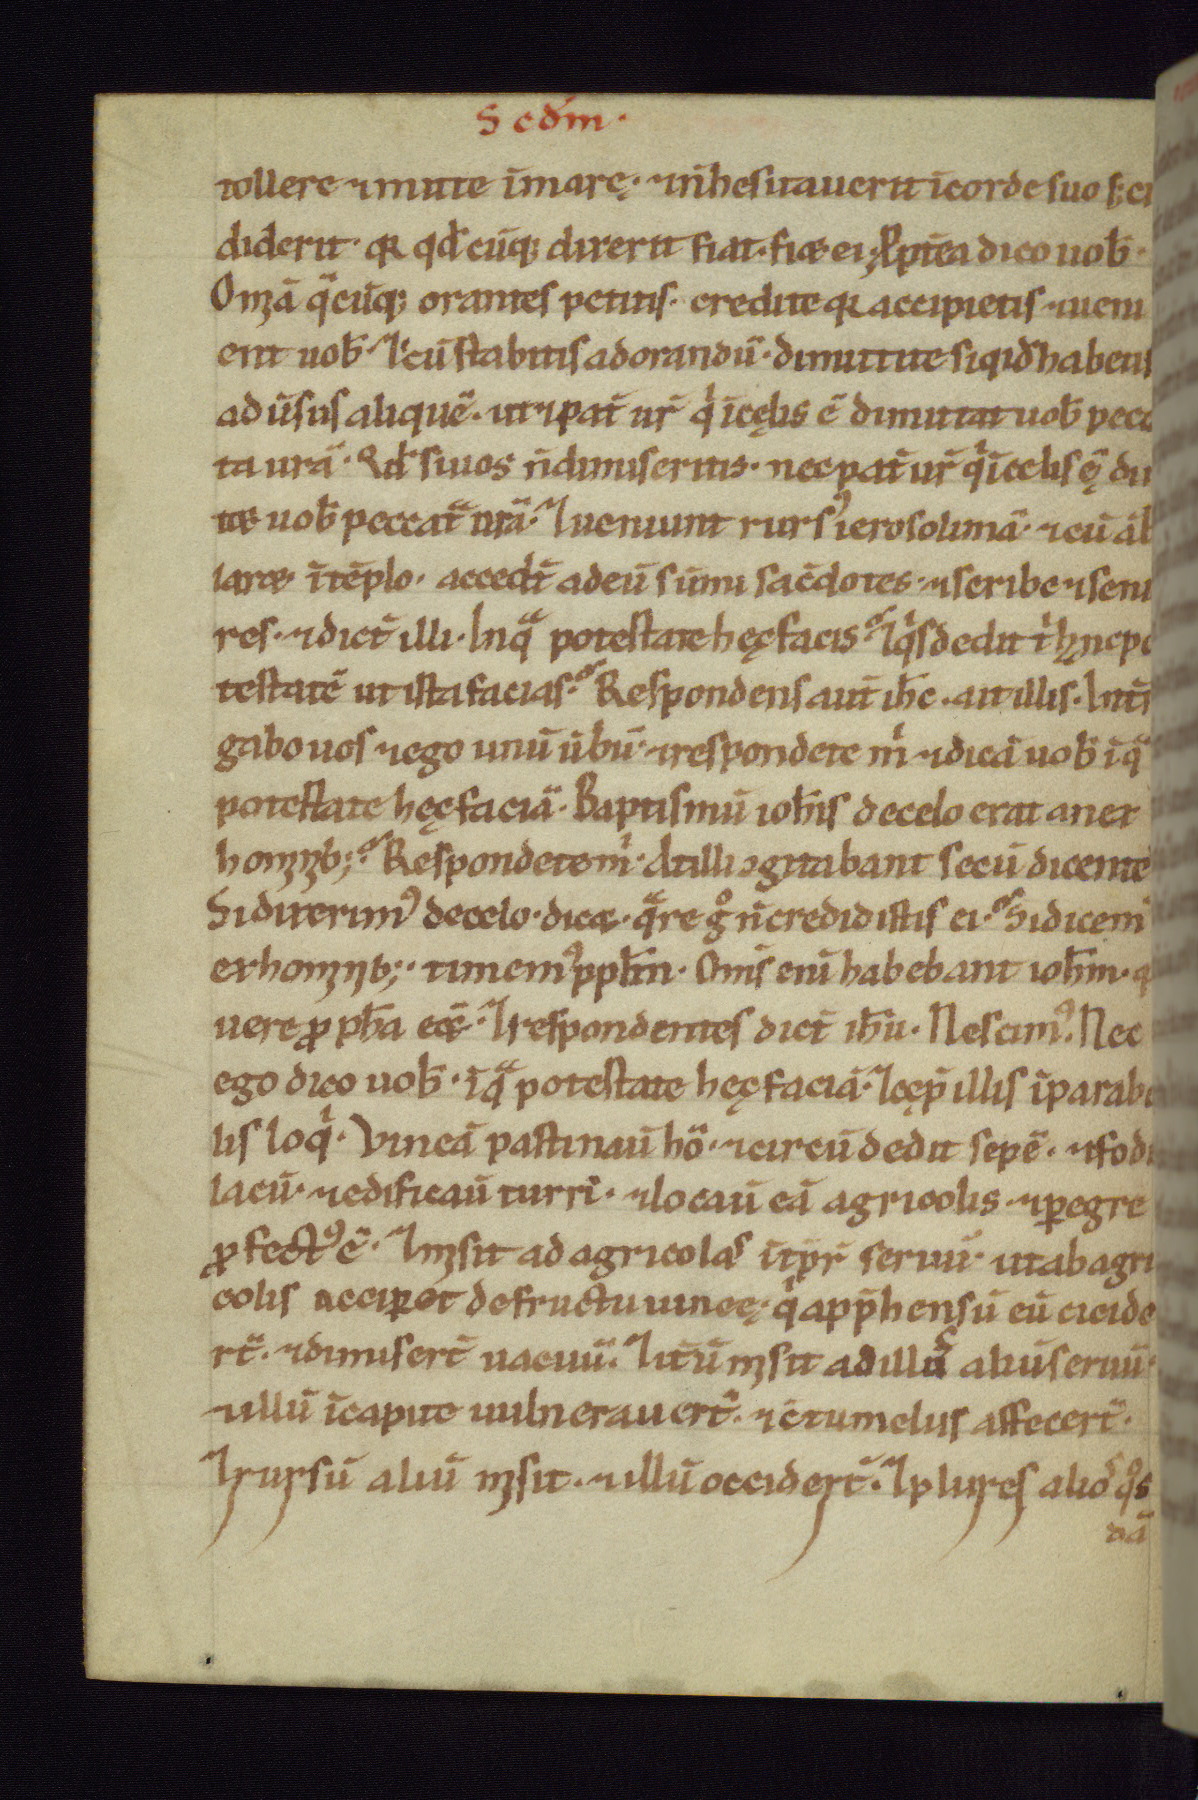 Scdm̄·
tollere ⁊mitte īmarę· ⁊n̄hesitauerit īcorde suo s; c
diderit· qꝛ qd̄cūq; dixerit fiat· fiet ei· Ꝓpt̄ea dico uob̄·
Om̄ā q̄cūq; orantes petitis· credite qꝛ accipietis ⁊ueni
ent uob̄· ⁊cū stabitis adorandū· dimittite siqid habetis
adūsus aliquē· ut ⁊pat̄ ur̄ q̄ īcęlis ē dimittat uob̄ pecca
ta urā· Qd̄ siuos n̄dimiseritis· nec pat̄ ur̄ q̄ īcelis ę̄ di
tet uob̄ peccat̄ urā· ⁊ueniunt rurs᾿ ierosolimā· ⁊cū āb
laret ītēplo· accedt̄ adeū sūmi sac̄dotes ⁊scribe ⁊seni
res· ⁊dict̄ illi· Inq̄ potestate hęc facis· ⁊q̄s dedit t̄ hn̄cpo
testatē ut ista facias· Respondens aut̄ ihc̄· ait illis· Int̄r
gabo uos ⁊ego unū ūbū· ⁊respondete m̄ ⁊dicā uob̄ īq̄
potestate hęc faciā· Baptismū ioh̄is decelo erat an ex
hom̄ib;· Respondete m̄· At illi ꝯgitabant secū dicente
Si dixerim᾿ decelo· dicet· q̄re g̊ n̄credidistis ei· Si dicem᾿
exhom̄ib;· timem᾿ pph̄m· Oms̄ eni habebant ioh̄m· q
uere ꝓph̄a eēt· ⁊respondentes dict̄ ih̄u· Nescim᾿· Nec
ego dico uob̄· īq̄ potestate hęc faciā· ⁊cęp̄ illis īparabo
lis loq̄· Vineā pastinauit hō· ⁊circūdedit sepē· ⁊fodi
lacū· ⁊edificauit turrī· ⁊locauit eā agricolis· ⁊ꝑegre
ꝓfect᾿ ē· ⁊misit ad agricolas ītp̄r seruū· utab agri
colis acciꝑet defructu uineę· q̄ app̄hensū eū cecide
rt̄· ⁊dimisert̄ uacuū· ⁊it̄ū misit ad illos aliū seruū·
⁊illū īcapite uulnerauert̄· ⁊ꝯtumeliis affecert̄·
⁊rursū aliū misit· ⁊illū occidert̄· ⁊plures alios q̊s
dā